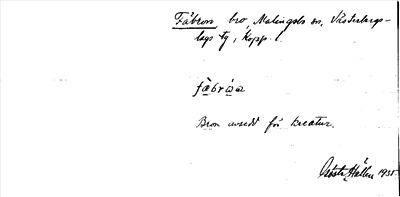 Fäbron, bro, Malingsbo sn, Västerbergs-
lags tg, Kopp.
fä̀bró̄n
Bron avsedd för kreatur.
Gösta Hallén 1935.